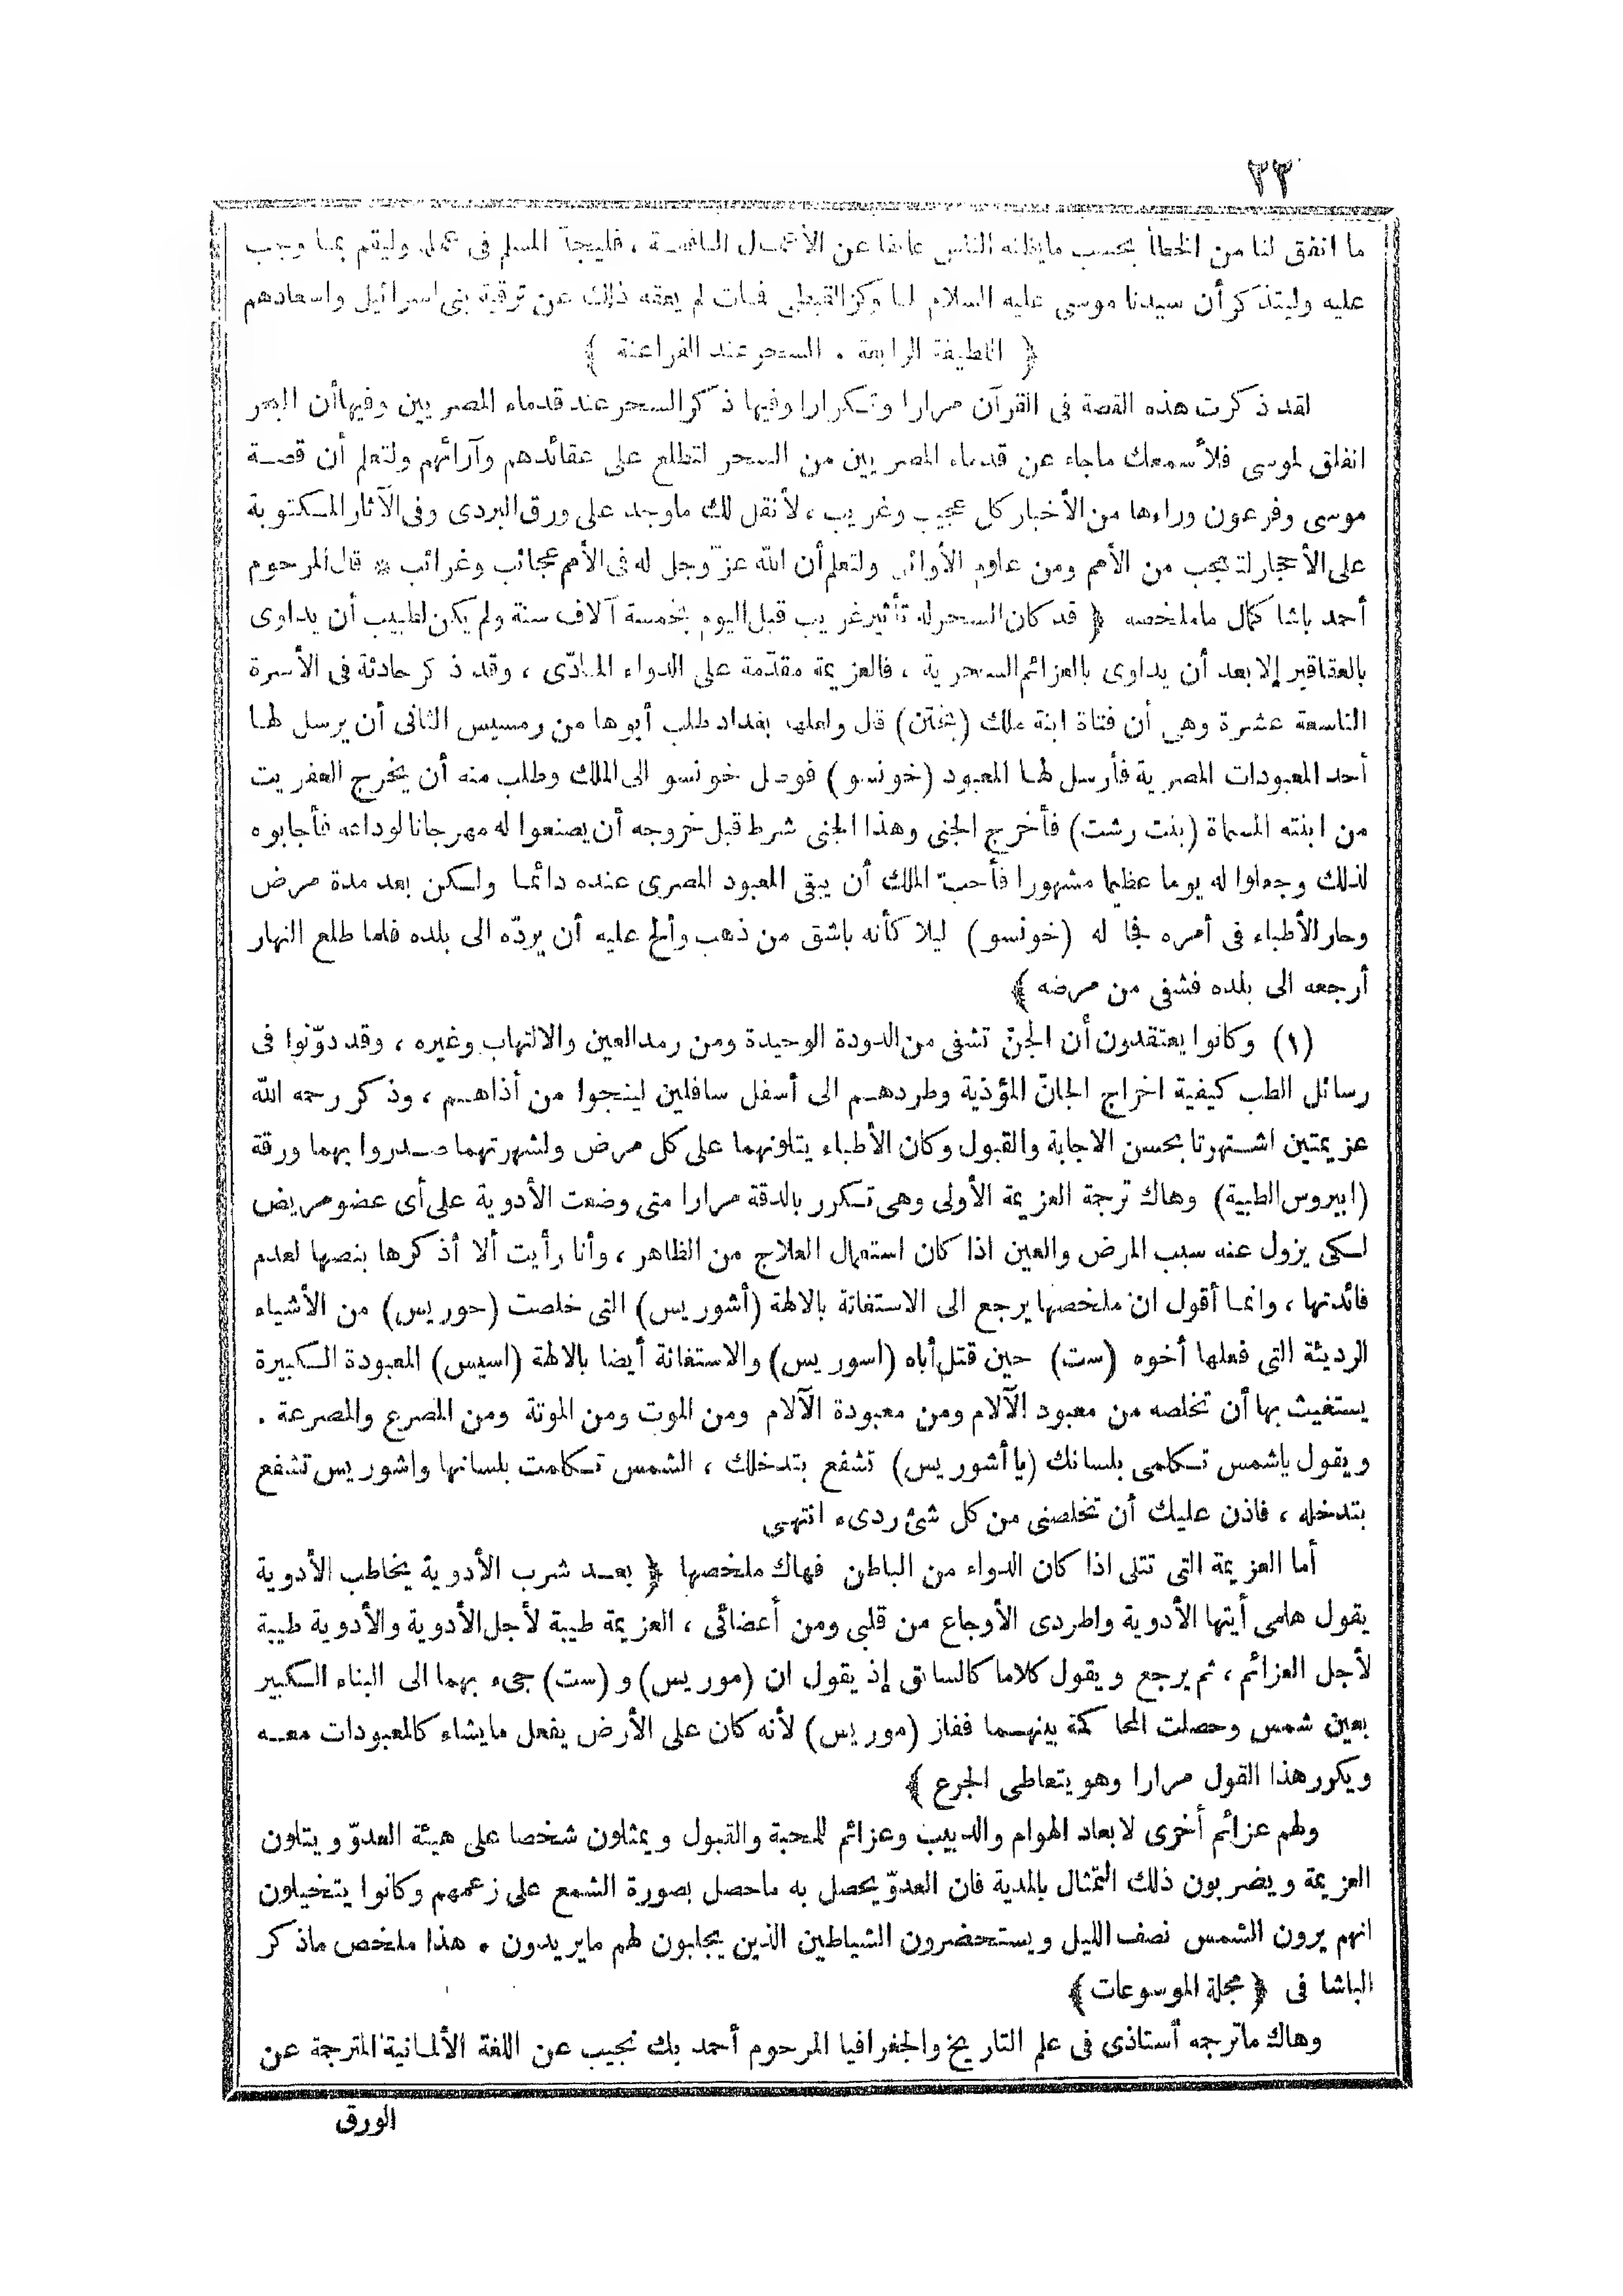 ٢٢
ما اتفق لنا من الخطأ بحسب مايظنه الناس عائقا عن الأعمال النافعة ، فليجدّ المسلم فى عمله وليقم بما وجب
عليه وليتذكر أن سيدنا موسى عليه السلام لما وكز القبطى فمات لم يعقه ذلك عن ترقية بنى اسرائيل واسعادهم
﴿ اللطيفة الرابعة . السحر عند الفراعنة ﴾
لقد ذكرت هذه القصة فى القرآن مرارا وتكرارا وفيها ذكر السحر عند قدماء المصريين وفيها أن البحر
انفلق لموسى فلأسمعك ماجاء عن قدماء المصريين من السحر لتطلع على عقائدهم وآرائهم ولتعلم أن قصة
موسى وفرعون وراءها من الأخبار كل عجيب وغريب ، لأنقل لك ماوجد على ورق البردى وفى الآثار المكتوبة
على الأحجار لتعجب من الأمم ومن علوم الأوائل ولتعلم أن الله عزّ وجل له فى الأمم عجائب وغرائب * قال المرحوم
أحمد باشا كمال ماملخصه ﴿ قد كان السحر له تأثير غريب قبل اليوم بخمسة آلاف سنة ولم يكن لطبيب أن يداوى
بالعقاقير إلا بعد أن يداوى بالعزائم السحرية ، فالعزيمة مقدّمة على الدواء المادّى ، وقد ذكر حادثة فى الأسرة
التاسعة عشرة وهى أن فتاة ابنة ملك (بختن) قال ولعلها بغداد طلب أبوها من رمسيس الثانى أن يرسل لها
أحد المعبودات المصرية فأرسل لها المعبود (خونسو) فوصل خونسو الى الملك وطلب منه أن يخرج العفريت
من ابنته المسماة (بنت رشت) فأخرج الجنى وهذا الجنى شرط قبل خروجه أن يصنعوا له مهرجانا لوداعه فأجابوه
لذلك وجعلوا له يوما عظيما مشهورا فأحبّ الملك أن يبقى المعبود المصرى عنده دائما ولكن بعد مدة مرض
وحار الأطباء فى أمره فجا له (خونسو) ليلا كأنه باشق من ذهب وألح عليه أن يردّه الى بلده فلما طلع النهار
أرجعه الى بلده فشفى من مرضه ﴾
(١) وكانوا يعتقدون أن الجنّ تشفى من الدودة الوحيدة ومن رمد العين والالتهاب وغيره ، وقد دوّنوا فى
رسائل الطب كيفية اخراج الجانّ المؤذية وطردهم الى أسفل سافلين لينجوا من أذاهم ، وذكر رحمه الله
عزيمتين اشتهرتا بحسن الاجابة والقبول وكان الأطباء يتلونهما على كل مرض ولشهرتهما صدروا بهما ورقة
(ابيروس الطبية) وهاك ترجمة العزيمة الأولى وهى تكرر بالدقة مرارا متى وضعت الأدوية على أى عضو مريض
لكى يزول عنه سبب المرض والعين اذا كان استعمال العلاج من الظاهر ، وأنا رأيت ألا أذكرها بنصها لعدم
فائدتها ، وانما أقول ان ملخصها يرجع الى الاستغاثة بالالهة (أشوريس) التى خلصت (حوريس) من الأشياء
الرديئة التى فعلها أخوه (ست) حين قتل أباه (اسوريس) والاستغاثة أيضا بالالهة (اسيس) المعبودة الكبيرة
يستغيث بها أن تخلصه من معبود الآلام ومن معبودة الآلام ومن الموت ومن الموتة ومن المصرع والمصرعة .
ويقول ياشمس تكلمى بلسانك (يا أشوريس) تشفع بتدخلك ، الشمس تكلمت بلسانها واشوريس تشفع
بتدخله ، فاذن عليك أن تخلصنى من كل شئ ردىء انتهى
أما العزيمة التى تتلى اذا كان الدواء من الباطن فهاك ملخصها ﴿ بعد شرب الأدوية يخاطب الأدوية
يقول هلمى أيتها الأدوية واطردى الأوجاع من قلبى ومن أعضائى ، العزيمة طيبة لأجل الأدوية والأدوية طيبة
لأجل العزائم ، ثم يرجع ويقول كلاما كالسابق إذ يقول ان (موريس) و (ست) جىء بهما الى البناء الكبير
بعين شمس وحصلت المحاكمة بينهما ففاز (موريس) لأنه كان على الأرض يفعل مايشاء كالمعبودات معه
ويكرر هذا القول مرارا وهو يتعاطى الجرع ﴾
ولهم عزائم أخرى لابعاد الهوام والدبيب وعزائم للمحبة والقبول ويمثلون شخصا على هيئة العدوّ ويتلون
العزيمة ويضربون ذلك التمثال بالمدية فان العدوّ يحصل به ماحصل بصورة الشمع على زعمهم وكانوا يتخيلون
انهم يرون الشمس نصف الليل ويستحضرون الشياطين الذين يجلبون لهم مايريدون . هذا ملخص ماذكر
الباشا فى ﴿ مجلة الموسوعات ﴾
وهاك ماترجمه أستاذى فى علم التاريخ والجغرافيا المرحوم أحمد بك نجيب عن اللغة الألمانية المترجمة عن
الورق